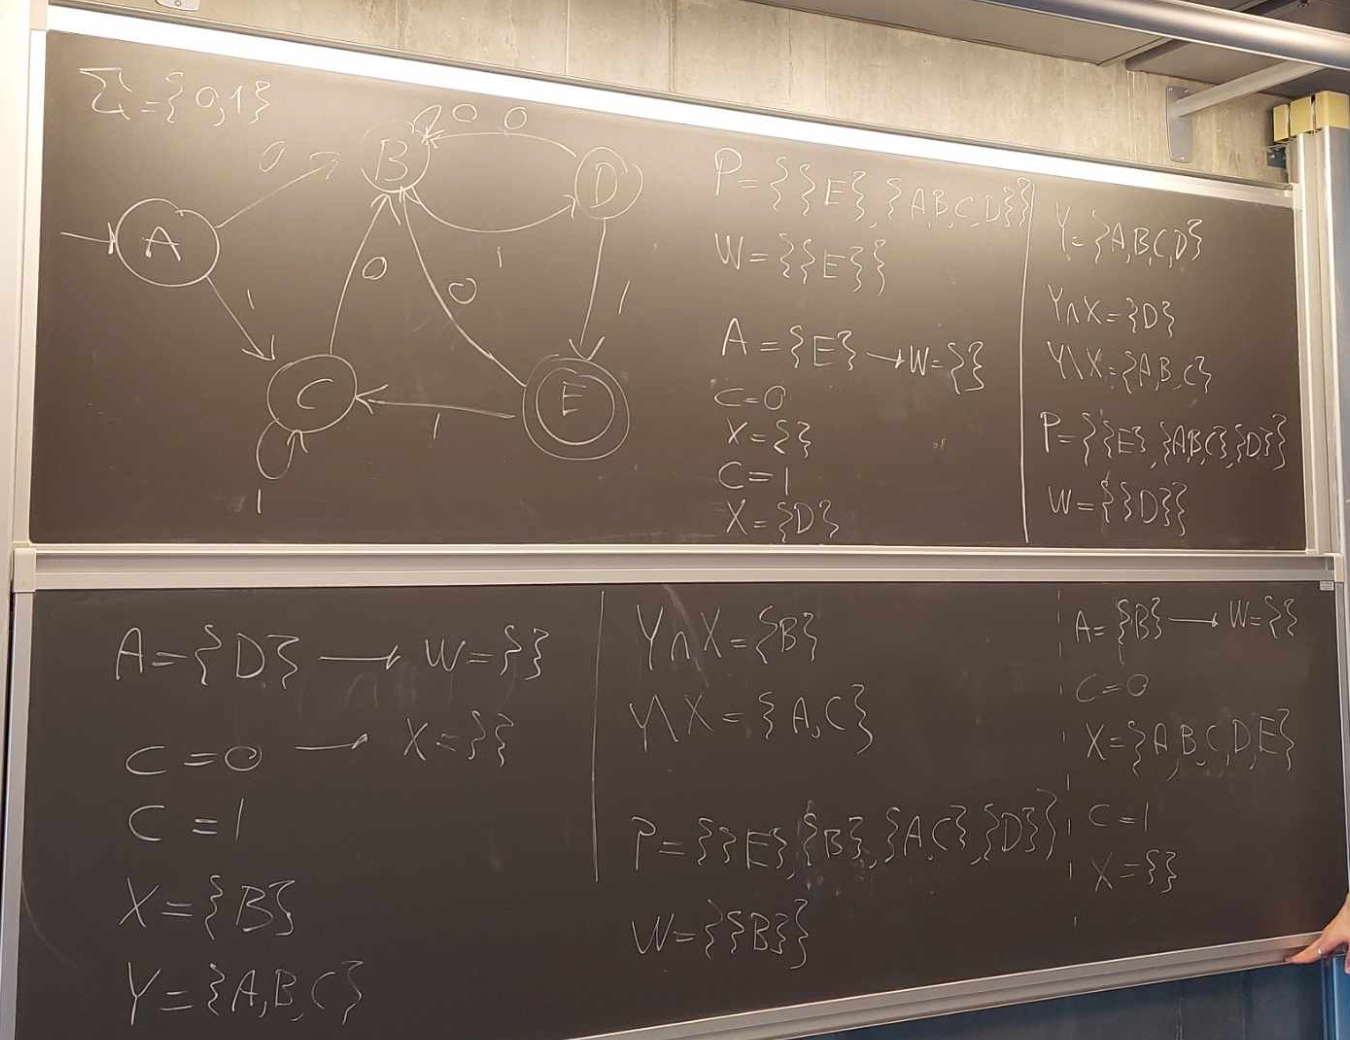 Σ={0,1}
0
0
0
B
D
A
1
1
0
0
1
C
E
1
1
P={{E},{A,B,C,D}}
W={{E}}
A={E}→W={}
C=0
X={}
C=1
X={D}
Y={A,B,C,D}
Y∩X={D}
Y\X={A,B,C}
P={{E},{A,B,C},{D}}
W={{D}}
A={D}→W={}
C=0→X={}
C=1
X={B}
Y={A,B,C}
Y∩X={B}
Y\X={A,C}
P={{E},{B},{A,C},{D}}
W={{B}}
A={B}→W={}
C=0
X={A,B,C,D,E}
C=1
X={}